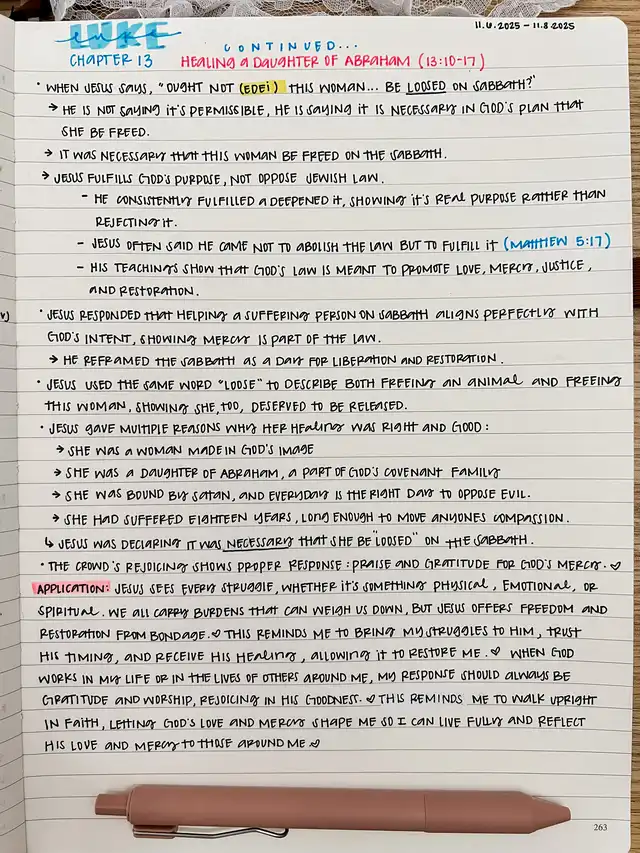 11.6.2025 - 11.8.2025
LUKE
CONTINUED...
CHAPTER 13 HEALING A DAUGHTER OF ABRAHAM (13:10-17)
• WHEN JESUS SAYS, "OUGHT NOT (EDEI) THIS WOMAN... BE LOOSED ON SABBATH?"
→ HE IS NOT SAYING IT'S PERMISSIBLE, HE IS SAYING IT IS NECESSARY IN GOD'S PLAN THAT
SHE BE FREED.
→ IT WAS NECESSARY THAT THIS WOMAN BE FREED ON THE SABBATH.
→ JESUS FULFILLS GOD'S PURPOSE, NOT OPPOSE JEWISH LAW.
- HE CONSISTENTLY FULFILLED A DEEPENED IT, SHOWING IT'S REAL PURPOSE RATHER THAN
REJECTING IT.
- JESUS OFTEN SAID HE CAME NOT TO ABOLISH THE LAW BUT TO FULFILL IT (MATTHEW 5:17)
- HIS TEACHINGS SHOW THAT GOD'S LAW IS MEANT TO PROMOTE LOVE, MERCY, JUSTICE,
AND RESTORATION.
• JESUS RESPONDED THAT HELPING A SUFFERING PERSON ON SABBATH ALIGNS PERFECTLY WITH
GOD'S INTENT, SHOWING MERCY IS PART OF THE LAW.
→ HE REFRAMED THE SABBATH AS A DAY FOR LIBERATION AND RESTORATION.
• JESUS USED THE SAME WORD "LOOSE" TO DESCRIBE BOTH FREEING AN ANIMAL AND FREEING
THIS WOMAN, SHOWING SHE, TOO, DESERVED TO BE RELEASED.
• JESUS GAVE MULTIPLE REASONS WHY HER HEALING WAS RIGHT AND GOOD:
→ SHE WAS A WOMAN MADE IN GOD'S IMAGE
→ SHE WAS A DAUGHTER OF ABRAHAM, A PART OF GOD'S COVENANT FAMILY
→ SHE WAS BOUND BY SATAN, AND EVERYDAY IS THE RIGHT DAY TO OPPOSE EVIL.
→ SHE HAD SUFFERED EIGHTEEN YEARS, LONG ENOUGH TO MOVE ANYONES COMPASSION.
↳ JESUS WAS DECLARING IT WAS NECESSARY THAT SHE BE "LOOSED" ON THE SABBATH.
• THE CROWD'S REJOICING SHOWS PROPER RESPONSE: PRAISE AND GRATITUDE FOR GOD'S MERCY. ♡
APPLICATION: JESUS SEES EVERY STRUGGLE, WHETHER IT'S SOMETHING PHYSICAL, EMOTIONAL, OR
SPIRITUAL. WE ALL CARRY BURDENS THAT CAN WEIGH US DOWN, BUT JESUS OFFERS FREEDOM AND
RESTORATION FROM BONDAGE. ♡ THIS REMINDS ME TO BRING MY STRUGGLES TO HIM, TRUST
HIS TIMING, AND RECEIVE HIS HEALING, ALLOWING IT TO RESTORE ME. ♡ WHEN GOD
WORKS IN MY LIFE OR IN THE LIVES OF OTHERS AROUND ME, MY RESPONSE SHOULD ALWAYS BE
GRATITUDE AND WORSHIP, REJOICING IN HIS GOODNESS. ♡ THIS REMINDS ME TO WALK UPRIGHT
IN FAITH, LETTING GOD'S LOVE AND MERCY SHAPE ME SO I CAN LIVE FULLY AND REFLECT
HIS LOVE AND MERCY TO THOSE AROUND ME ♡
263